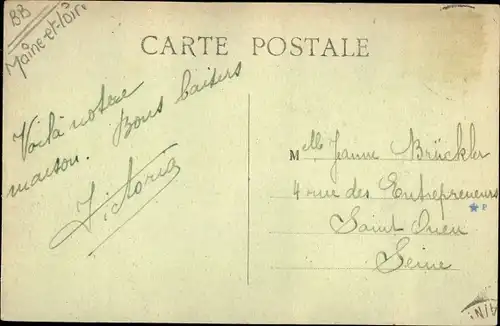 BB
Maine-et-Loire
CARTE POSTALE
Voilà notre
maison. Bons baisers
Victoria
Melle Jeanne Brückler
4 rue des Entrepreneurs
Saint Ouen
Seine